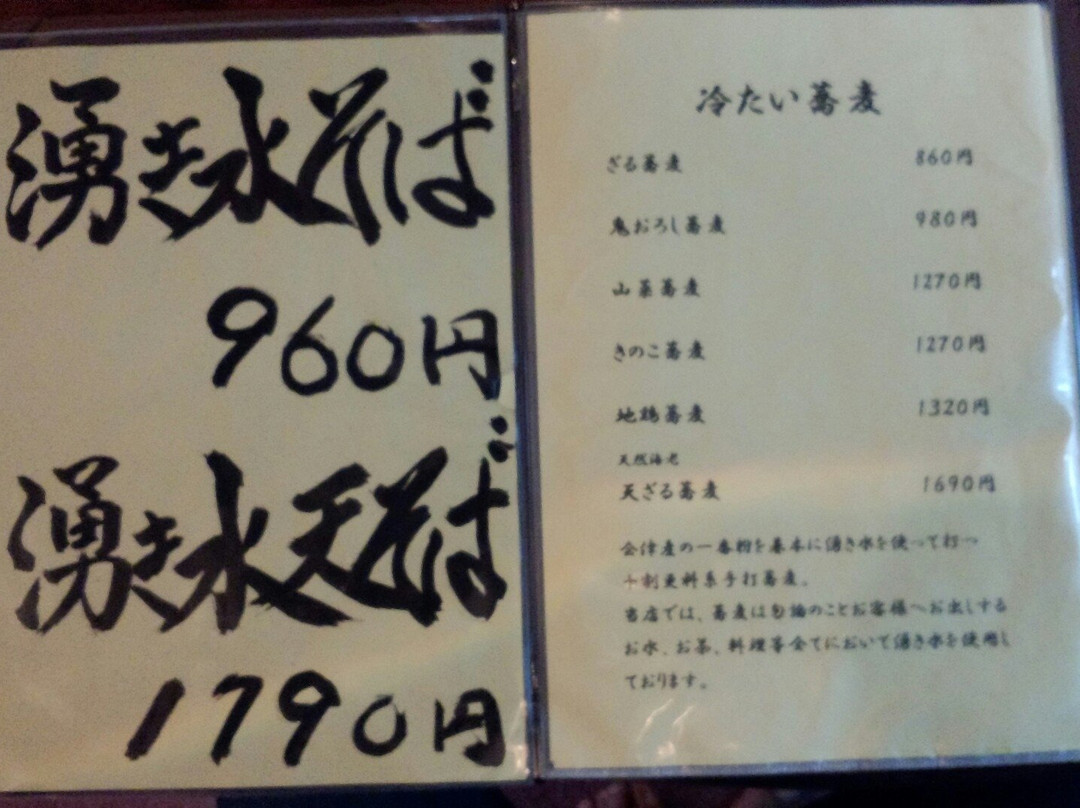 湧き水そば
960円
湧き水天そば
1790円
冷たい蕎麦
ざる蕎麦 860円
鬼おろし蕎麦 980円
山菜蕎麦 1270円
きのこ蕎麦 1270円
地鶏蕎麦 1320円
天然海老
天ざる蕎麦 1690円
会津産の一番粉を基本に湧き水を使って打つ
十割更科系手打蕎麦。
当店では、蕎麦は勿論のことお客様へお出しする
お水、お茶、料理等全てにおいて湧き水を使用し
ております。